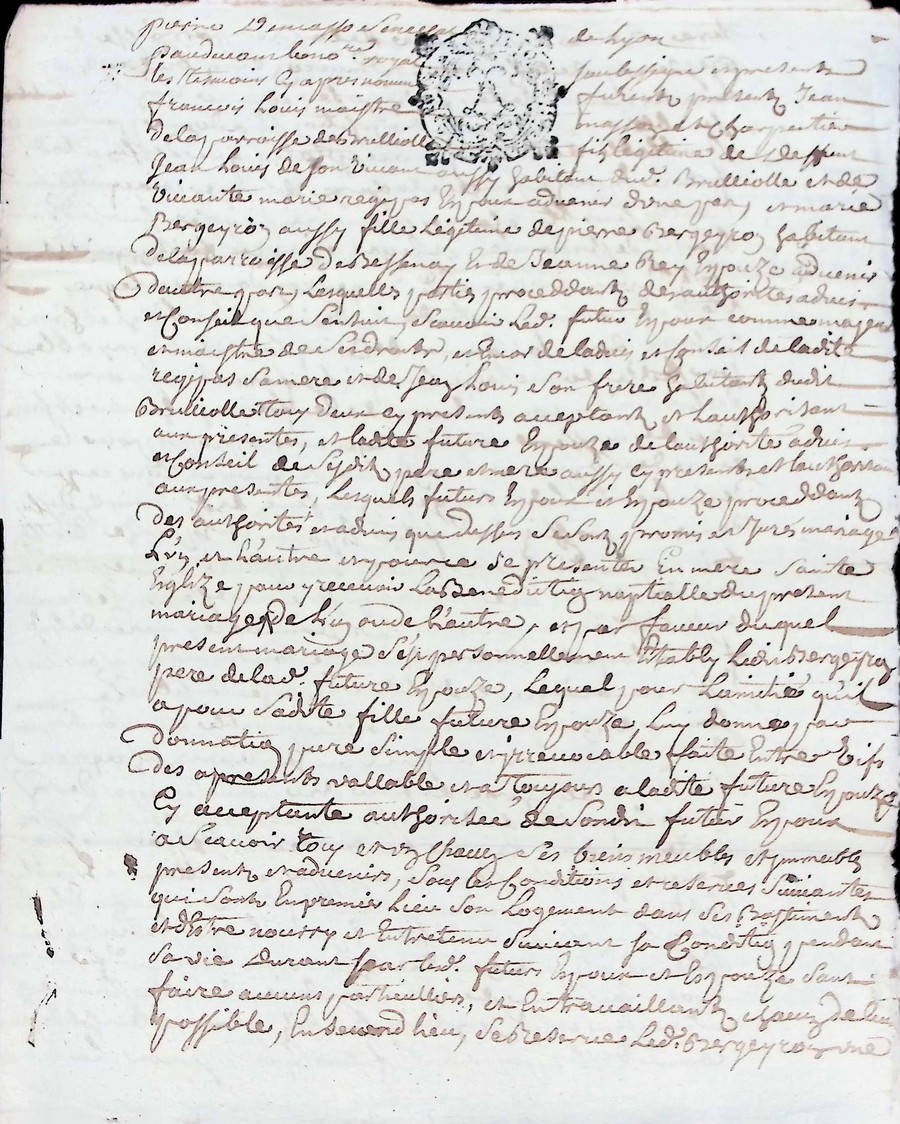 de Lyon
pardevant le no.re royal soussigné et present
les tesmoins cy apres nommés furent presents Jean
francois Louis maistre masson et Charpentier
de la parroisse de Brulliolle fils legitime de deffunt
Jean Louis de son vivant aussy habitant dud. Brulliolle et de
vivante marie regipas Espoux advenir d'une part, et marie
Bergeyron aussy fille Legitime de pierre Bergeyron habitant
de la parroisse de Bessenay Et de Jeanne Rey Espouze advenir
d'autre part, Lesquelles parties proceddants des authorités advis
et Conseil que s'ensuit, scavoir Led. futur Espoux comme majeur
et maistre de ses droits, et Encor de l'advis et Conseil de ladite
regipas sa mere et de Jean Louis son frere habitants dudit
Brulliolle tous deux cy presents acceptants et l'authorisant
aux presentes, et ladite future Espouze de l'authorité advis
et Conseil de sesdits pere et mere aussy cy presents et l'authorisant
aux presentes, Lesquels futurs Espoux et Espouze proceddants
des authorités et advis que dessus se sont promis et Jurés mariage
L'un et L'autre et pour ce se presenter En mere sainte
Eglize pour y recevoir La Benediction nuptialle du present
mariage de L'un ou de L'autre, et par faveur duquel
present mariage s'est personnellement Estably Ledit Bergeyron
pere de lad. future Espouze, Lequel pour L'amitié qu'il
a pour sadite fille future Espouze, Luy donne par
Donnation pure simple et irrevocable faite Entre vifs
des apresents vallable et a toujours a ladite future Espouze
Cy acceptante authorisée de sondit futur Espoux
a scavoir tous et un chacuns ses biens meubles et immeubles
presents et advenirs, sous les Conditions et reserves suivantes
qui sont En premier Lieu son Logement dans ses Bastiments
et d'Estre nourry et Entretenu suivant sa Condition pendant
sa vie durant par led. futurs Espoux et Espouze sans
faire aucuns particulliers, et En travaillant chacun de leur
possible, En second lieu, se Reserve Led. Bergeyron une